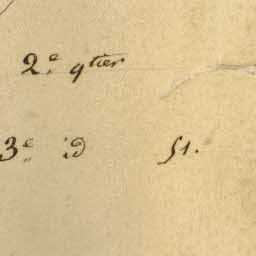 2.e qtier
3e. id 51.